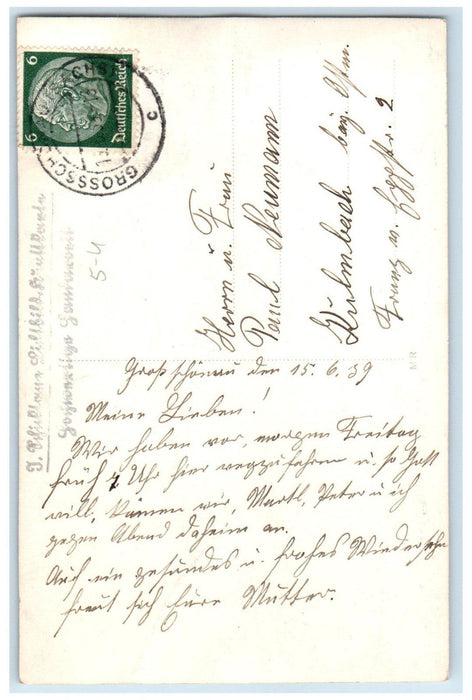 6
6
Deutsches Reich
GROSSSCH
c
Herrn u. Frau
Paul Neumann
Kulmbach bay. Ostm.
Franz
2
5-4
MR
Großschönau den 15.6.39
Meine Lieben!
Wir haben vor, morgen Freitag
früh 7 Uhr hier wegzufahren u. so Gott
will, kämen wir, Martl, Peter u. ich
gegen Abend daheim an.
Auf ein gesundes u. frohes Wiedersehn
freut sich Eure Mutter.